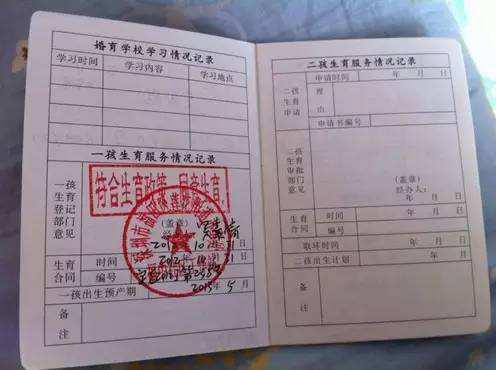 婚育学校学习情况记录
学习时间 学习内容 学习地点
一孩生育服务情况记录
一孩生育登记部门意见
符合生育政策，同意生育。
(盖章)
生育合同 时间
编号
一孩出生预产期 2015年5月
备注
二孩生育服务情况记录
二孩生育申请 申请时间 年 月 日
理由
申请书编号
二孩生育审批部门意见
(盖章)
经办人：
年 月 日
生育合同 时间 年 月 日
编号
取环时间 年 月 日
二孩出生计划
备注